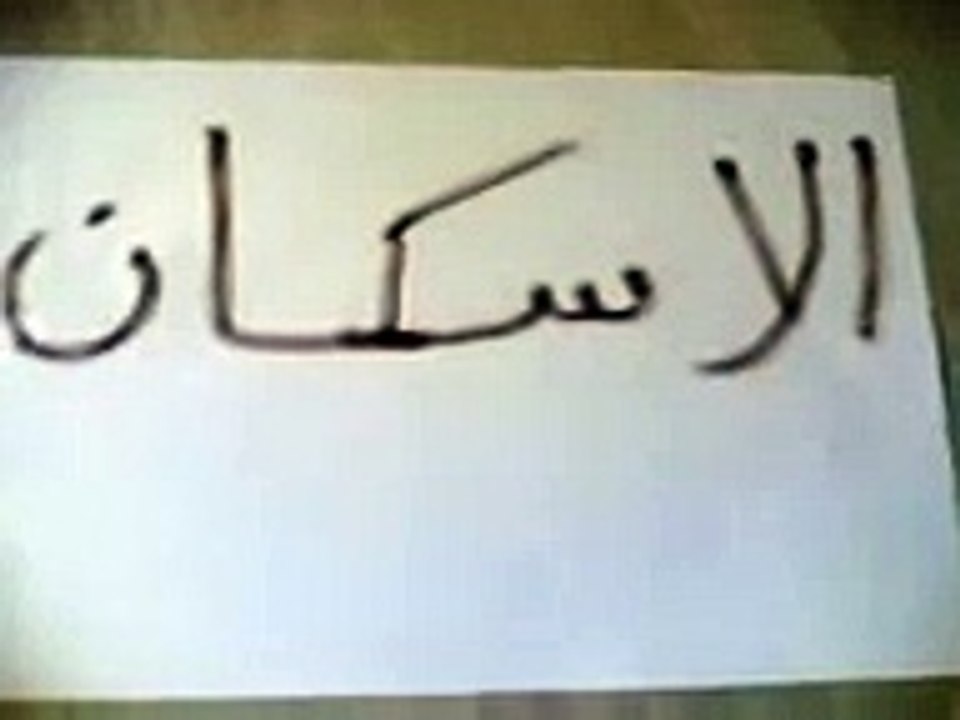 الاسكان